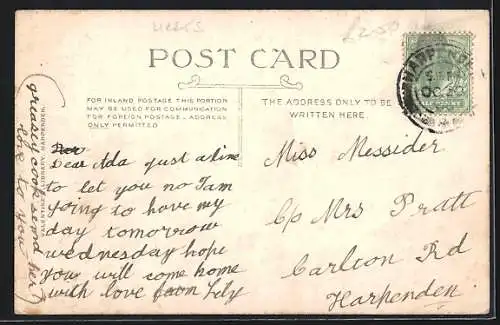 HERTS
£2.50
POST CARD
FOR INLAND POSTAGE THIS PORTION
MAY BE USED FOR COMMUNICATION
FOR FOREIGN POSTAGE - ADDRESS
ONLY PERMITTED
THE ADDRESS ONLY TO BE
WRITTEN HERE.
HARPENDEN
OC
Dear Ada just a line
to let you no I am
going to have my
day tomorrow
wednesday hope
you will come home
with love from Lily
Miss Messider
C/o Mrs Pratt
Carlton Rd
Harpenden
(greasy cook send her
love to you)
VALENTINE'S LIBRARY, HARPENDEN.